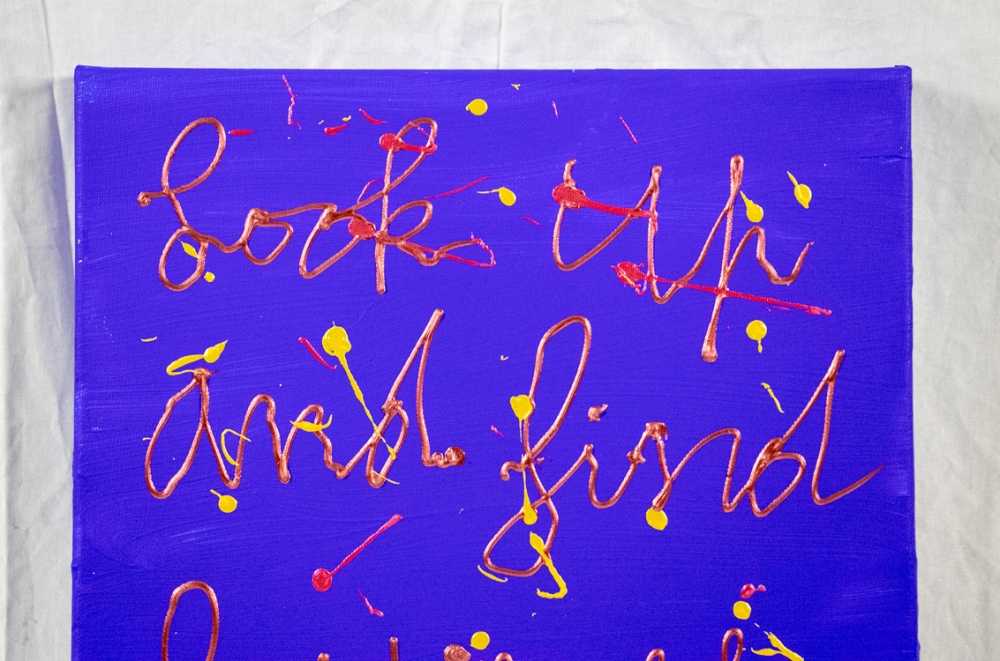 Look up
and find